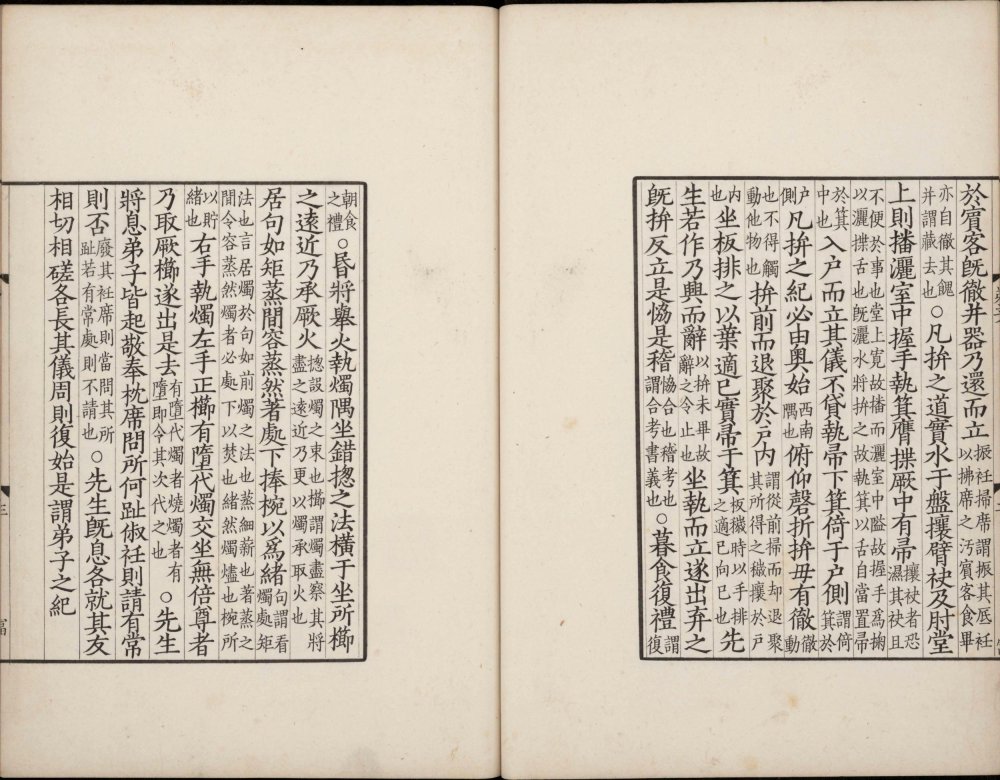 於賓客既徹并器乃還而立振衽掃席謂振其底衽以拂席之汚賓客食畢
亦自徹其餽并謂藏去也○凡拚之道實水于盤攘臂袂及肘堂
上則播灑室中握手執箕膺揲厥中有帚攘袂者恐濕其袂且
不便於事也堂上寛故播而灑室中隘故握手爲掬以灑揲舌也既灑水將拚之故執箕以舌自當置帚
於箕中也入户而立其儀不貸執帚下箕倚于户側謂倚箕於
户側凡拚之紀必由奥始西南隅也俯仰磬折拚毋有徹徹動
也不得觸動他物也拚前而退聚於户内謂從前掃而却退聚其所得之穢攘於户
内也坐板排之以葉適已實帚于箕板穢時以手排之適已向已也先
生若作乃興而辭以拚未畢故辭之令止也坐執而立遂出弃之
既拚反立是恊是稽恊合也稽考也謂合考書義也○暮食復禮謂復
朝食之禮○昬將舉火執燭隅坐錯揔之法横于坐所櫛
之遠近乃承厥火揔設燭之束也櫛謂燭盡察其將盡之遠近乃更以燭承取火也
居句如矩蒸間容蒸然著處下捧椀以爲緒句謂看燭處矩
法也言居燭於句如前燭之法也蒸細薪也著蒸之間令容蒸然燭者必處下以焚也緒然燭燼也椀所
以貯緒也右手執燭左手正櫛有墮代燭交坐無倍尊者
乃取厥櫛遂出是去有墮代燭者燒燭者有墮即令其次代之也○先生
將息弟子皆起敬奉枕席問所何趾俶衽則請有常
則否廢其衽席則當問其所趾若有常處則不請也○先生既息各就其友
相切相磋各長其儀周則復始是謂弟子之紀